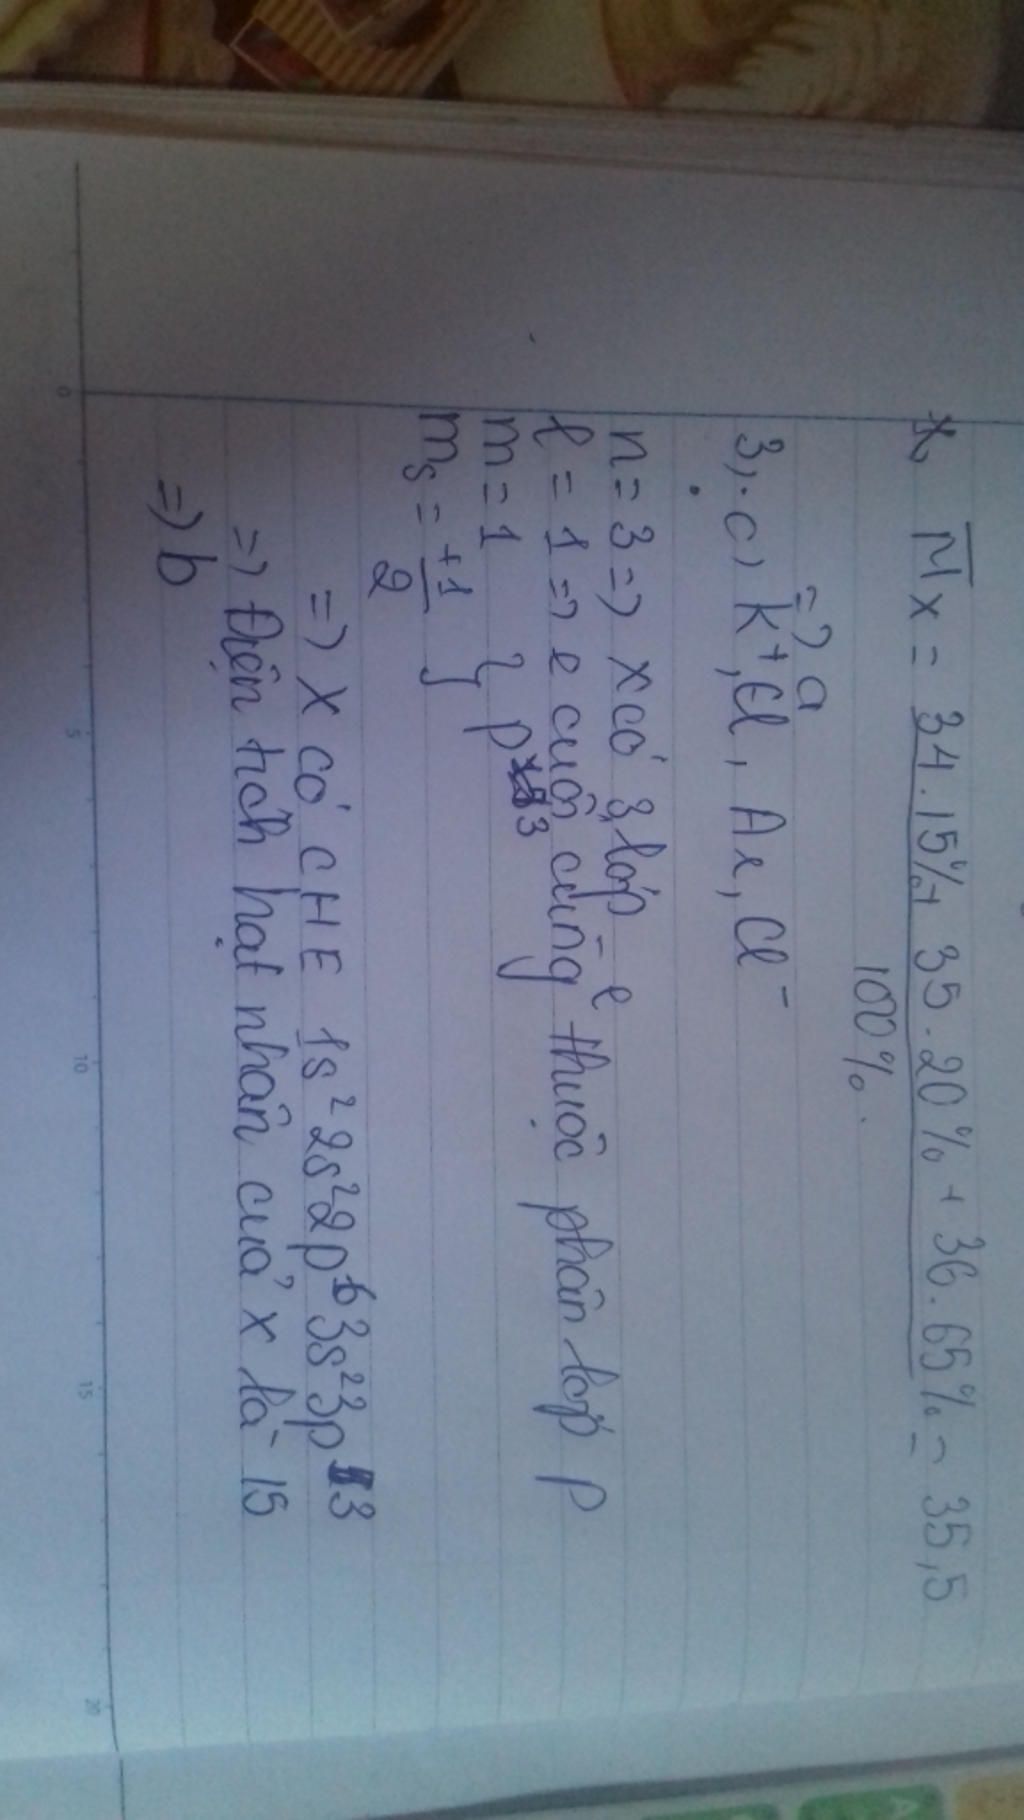 M̅x = 34.15% + 35.20% + 36.65% = 35,5
100%.
=) a
3, c, K⁺, Cl, Ar, Cl⁻
n = 3 =) X có 3 lớp e
l = 1 =) e cuối cùng thuộc phân lớp p
m = 1 } p3
ms = +1/2
=) X có CHE 1s² 2s² 2p⁶ 3s² 3p³
=) Điện tích hạt nhân của X là 15
=) b
0 5 10 15 20